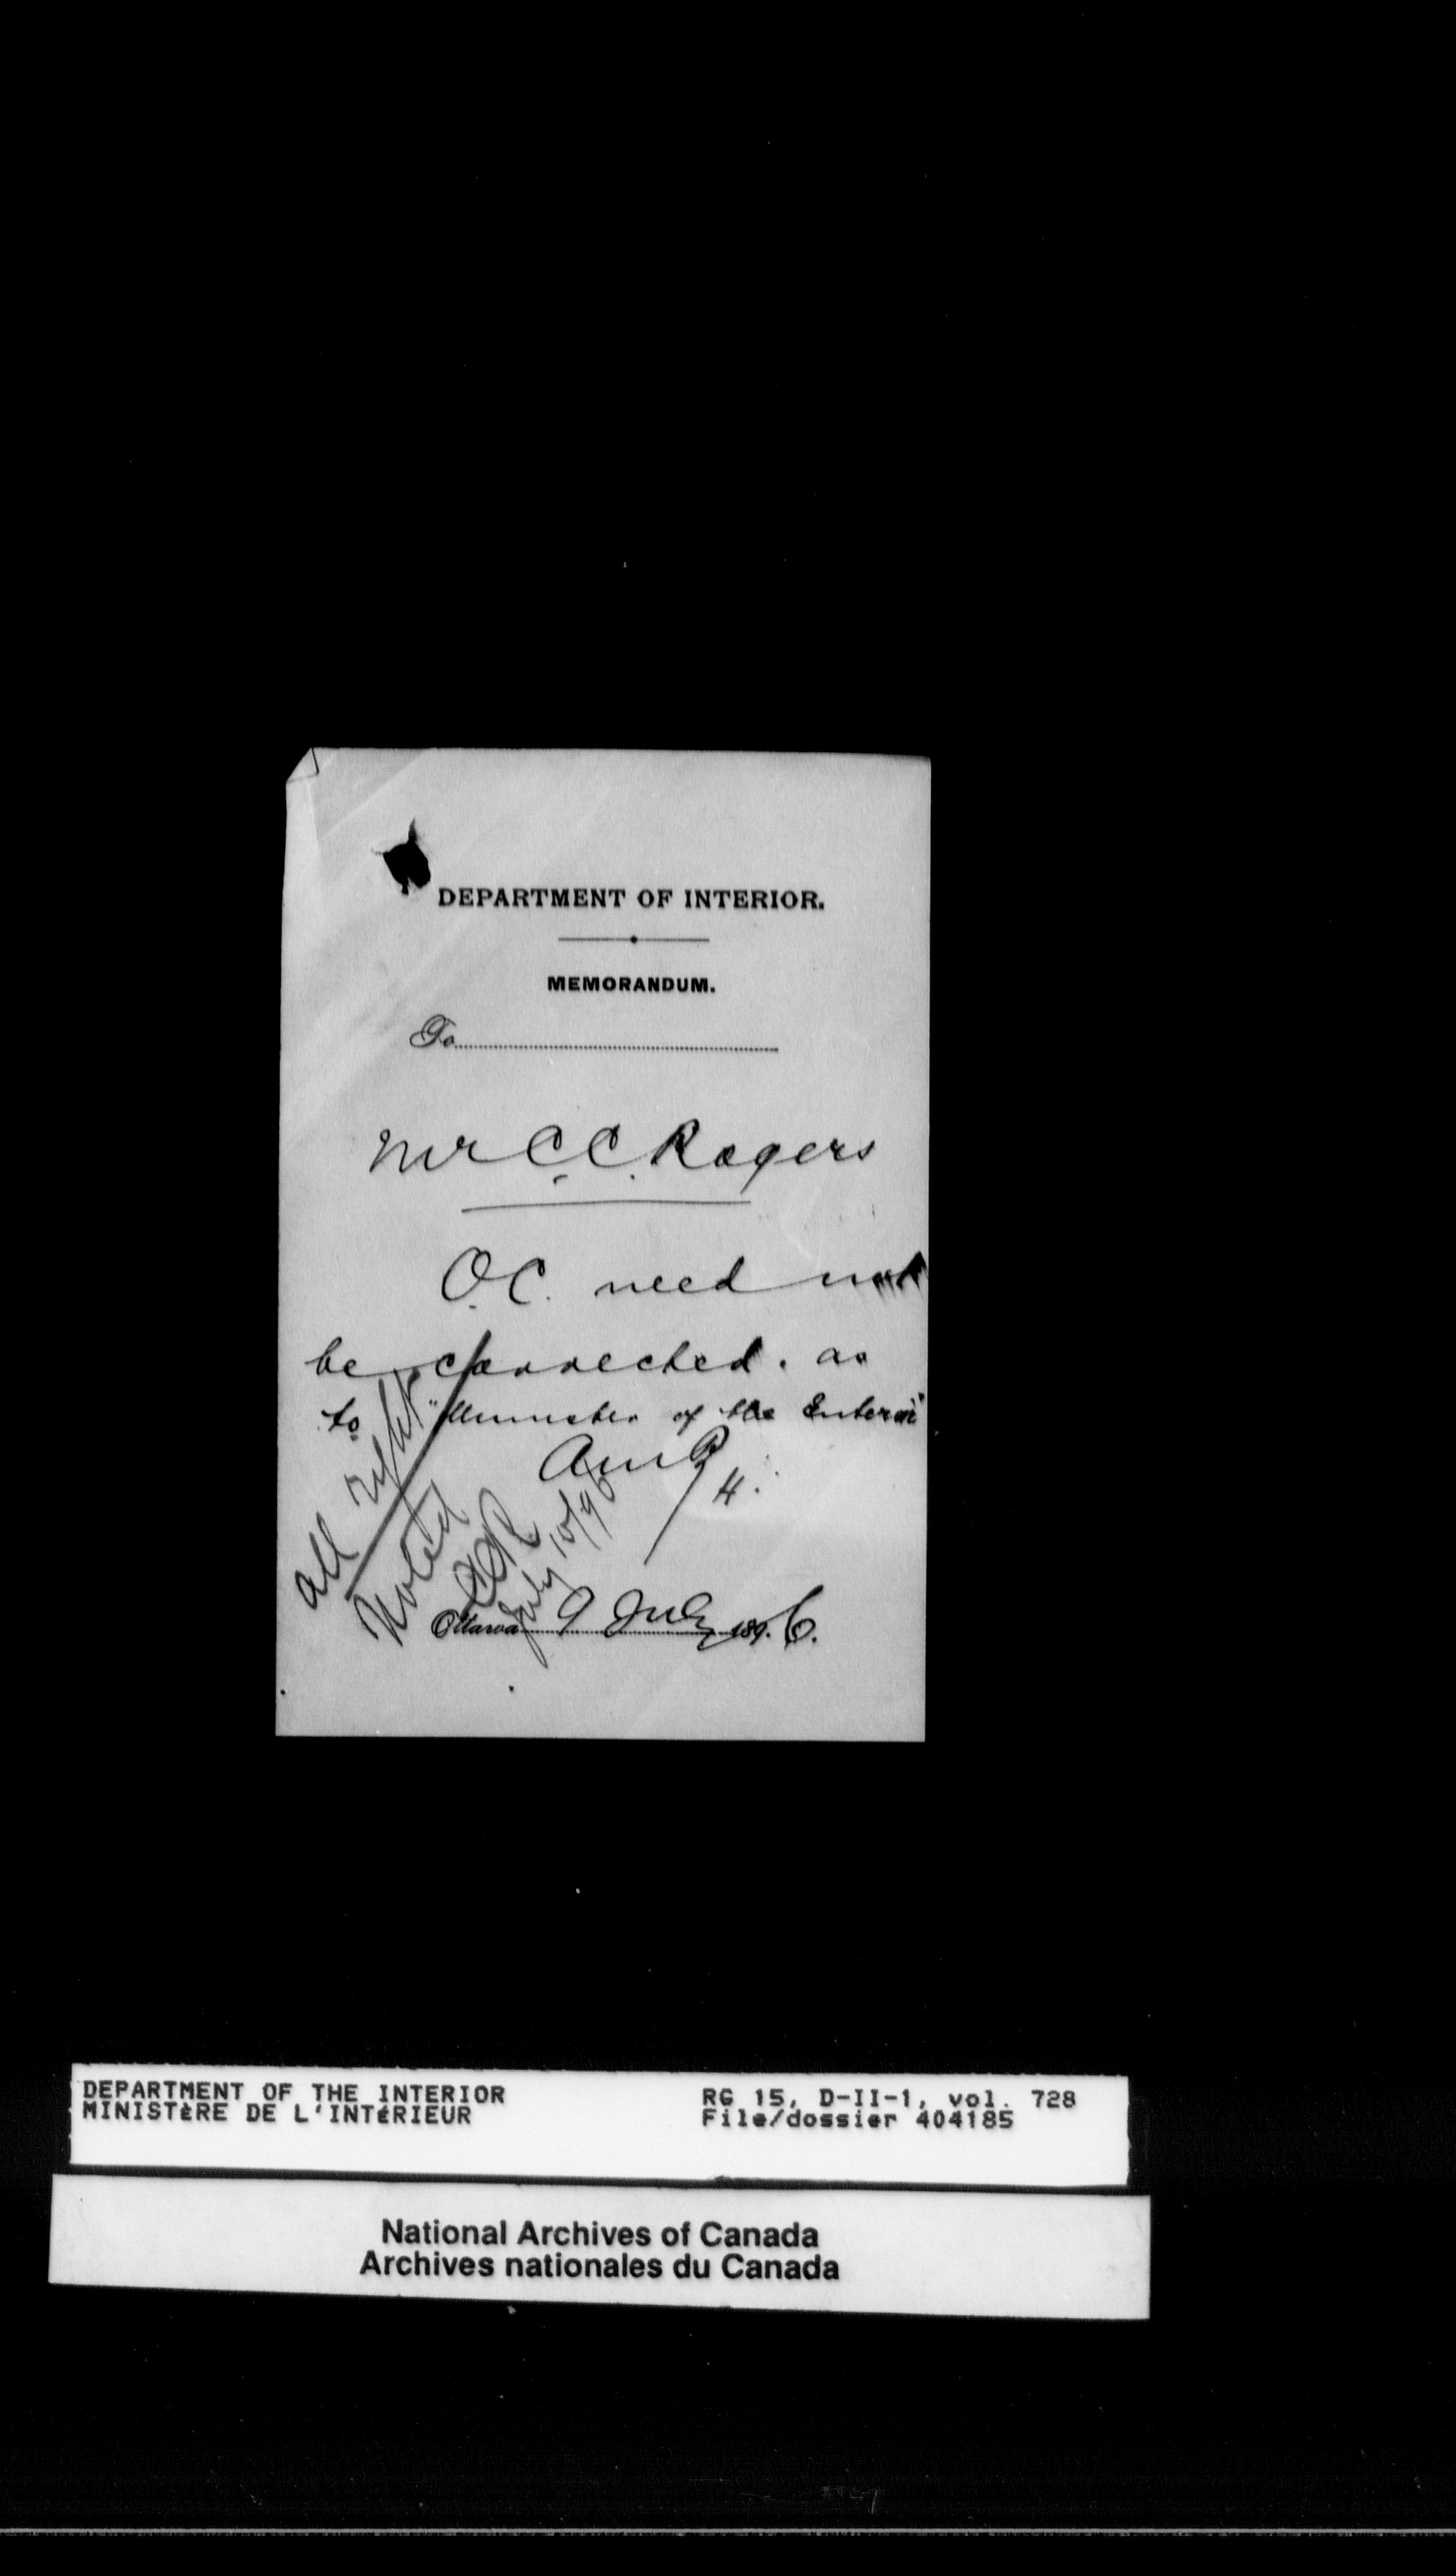 DEPARTMENT OF INTERIOR.
MEMORANDUM.
To
Mr C.C. Rogers
O.C. need not
be corrected. as
to "Minister of the Interior"
9 H.
all right
Noted
CCR
July 10/96
Ottawa 9 July 1896.
DEPARTMENT OF THE INTERIOR
MINISTÈRE DE L'INTÉRIEUR
RG 15, D-II-1, vol. 728
File/dossier 404185
National Archives of Canada
Archives nationales du Canada